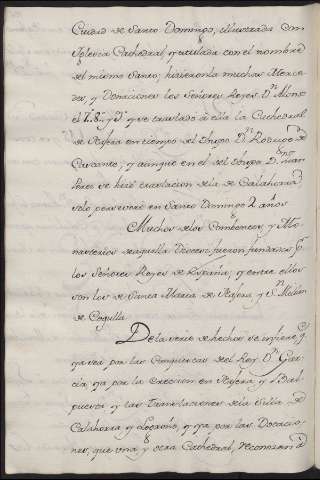 Ciudad de Santo Domingo, ilustrada con
Iglesia Cathedral, y titulada con el nombre
del mismo Santo; hicieronla muchas Merce-
des, y Donaciones los Señores Reyes Dn Alonso
el 7. 8. y 9. que se traslado à ella la Cathedral
de Naxera en tiempo del Obispo Dn Rodrigo de
Cascante; y aunque en el del Obispo Dn Juan
Perez se hizo traslacion de la de Calahorra
solo perseverò en Santo Domingo 2 años
Muchos de los Combentos, y Mo-
nasterios de aquella Diocesi fueron fundados pr
los Señores Reyes de España, y entre ellos
son los de Santa Maria de Naxera y Sn Millan
de Cogulla.
De la serie de hechos se infiere q
ya sea por las Conquistas del Rey Dn Gar-
cia, ya por la Ereccion en Naxera, y Bal-
puesta y las Translaciones de la Silla de
Calahorra y Logroño, y ya por las Dotacio-
nes, que una y otra Cathedral, reconozcan à